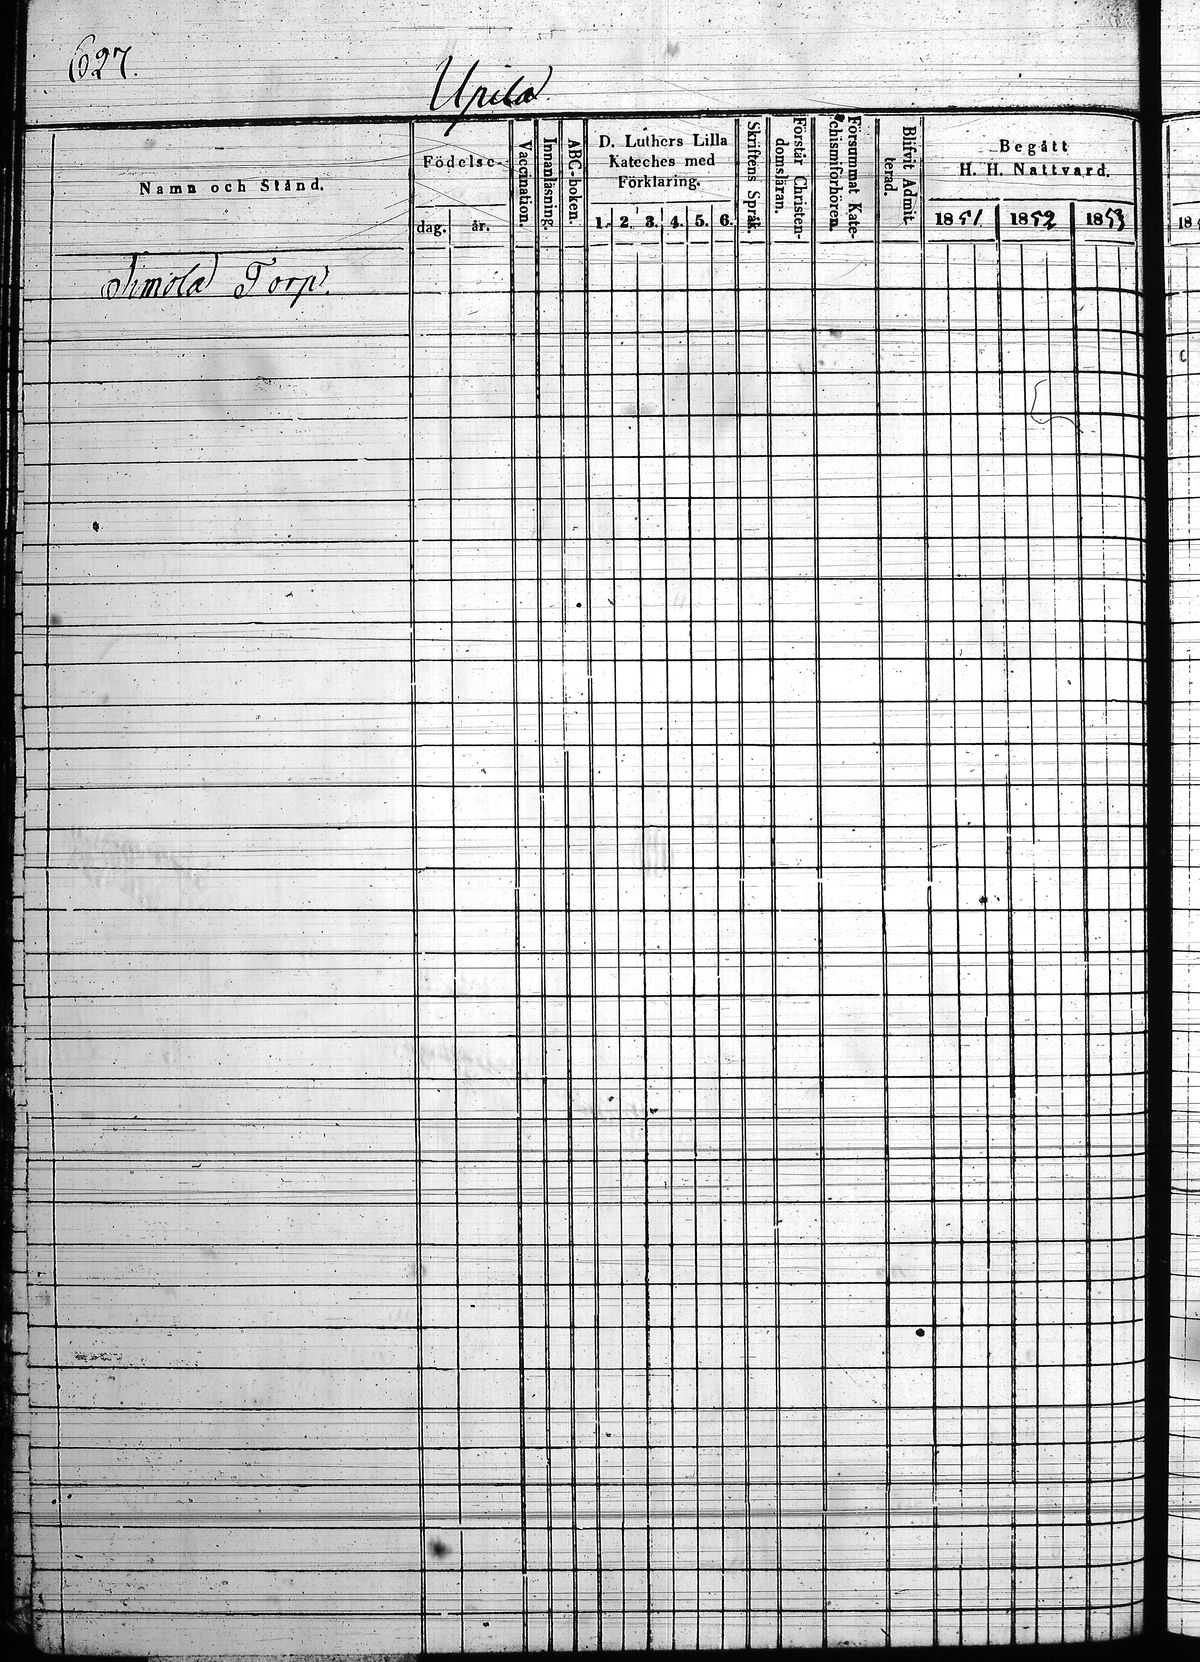 627.
Upila
Namn och Stånd.
Födelse-
dag. år.
Vaccination.
Innanläsning.
ABC-boken.
D. Luthers Lilla
Kateches med
Förklaring.
1. 2. 3. 4. 5. 6.
Skriftens Språk.
Förstår Christen-
domsläran.
Försummat Kate-
chismiförhören.
Blifvit Admit-
terad.
Begått
H. H. Nattvard.
1851 1852 1853
18
Simola Torp.